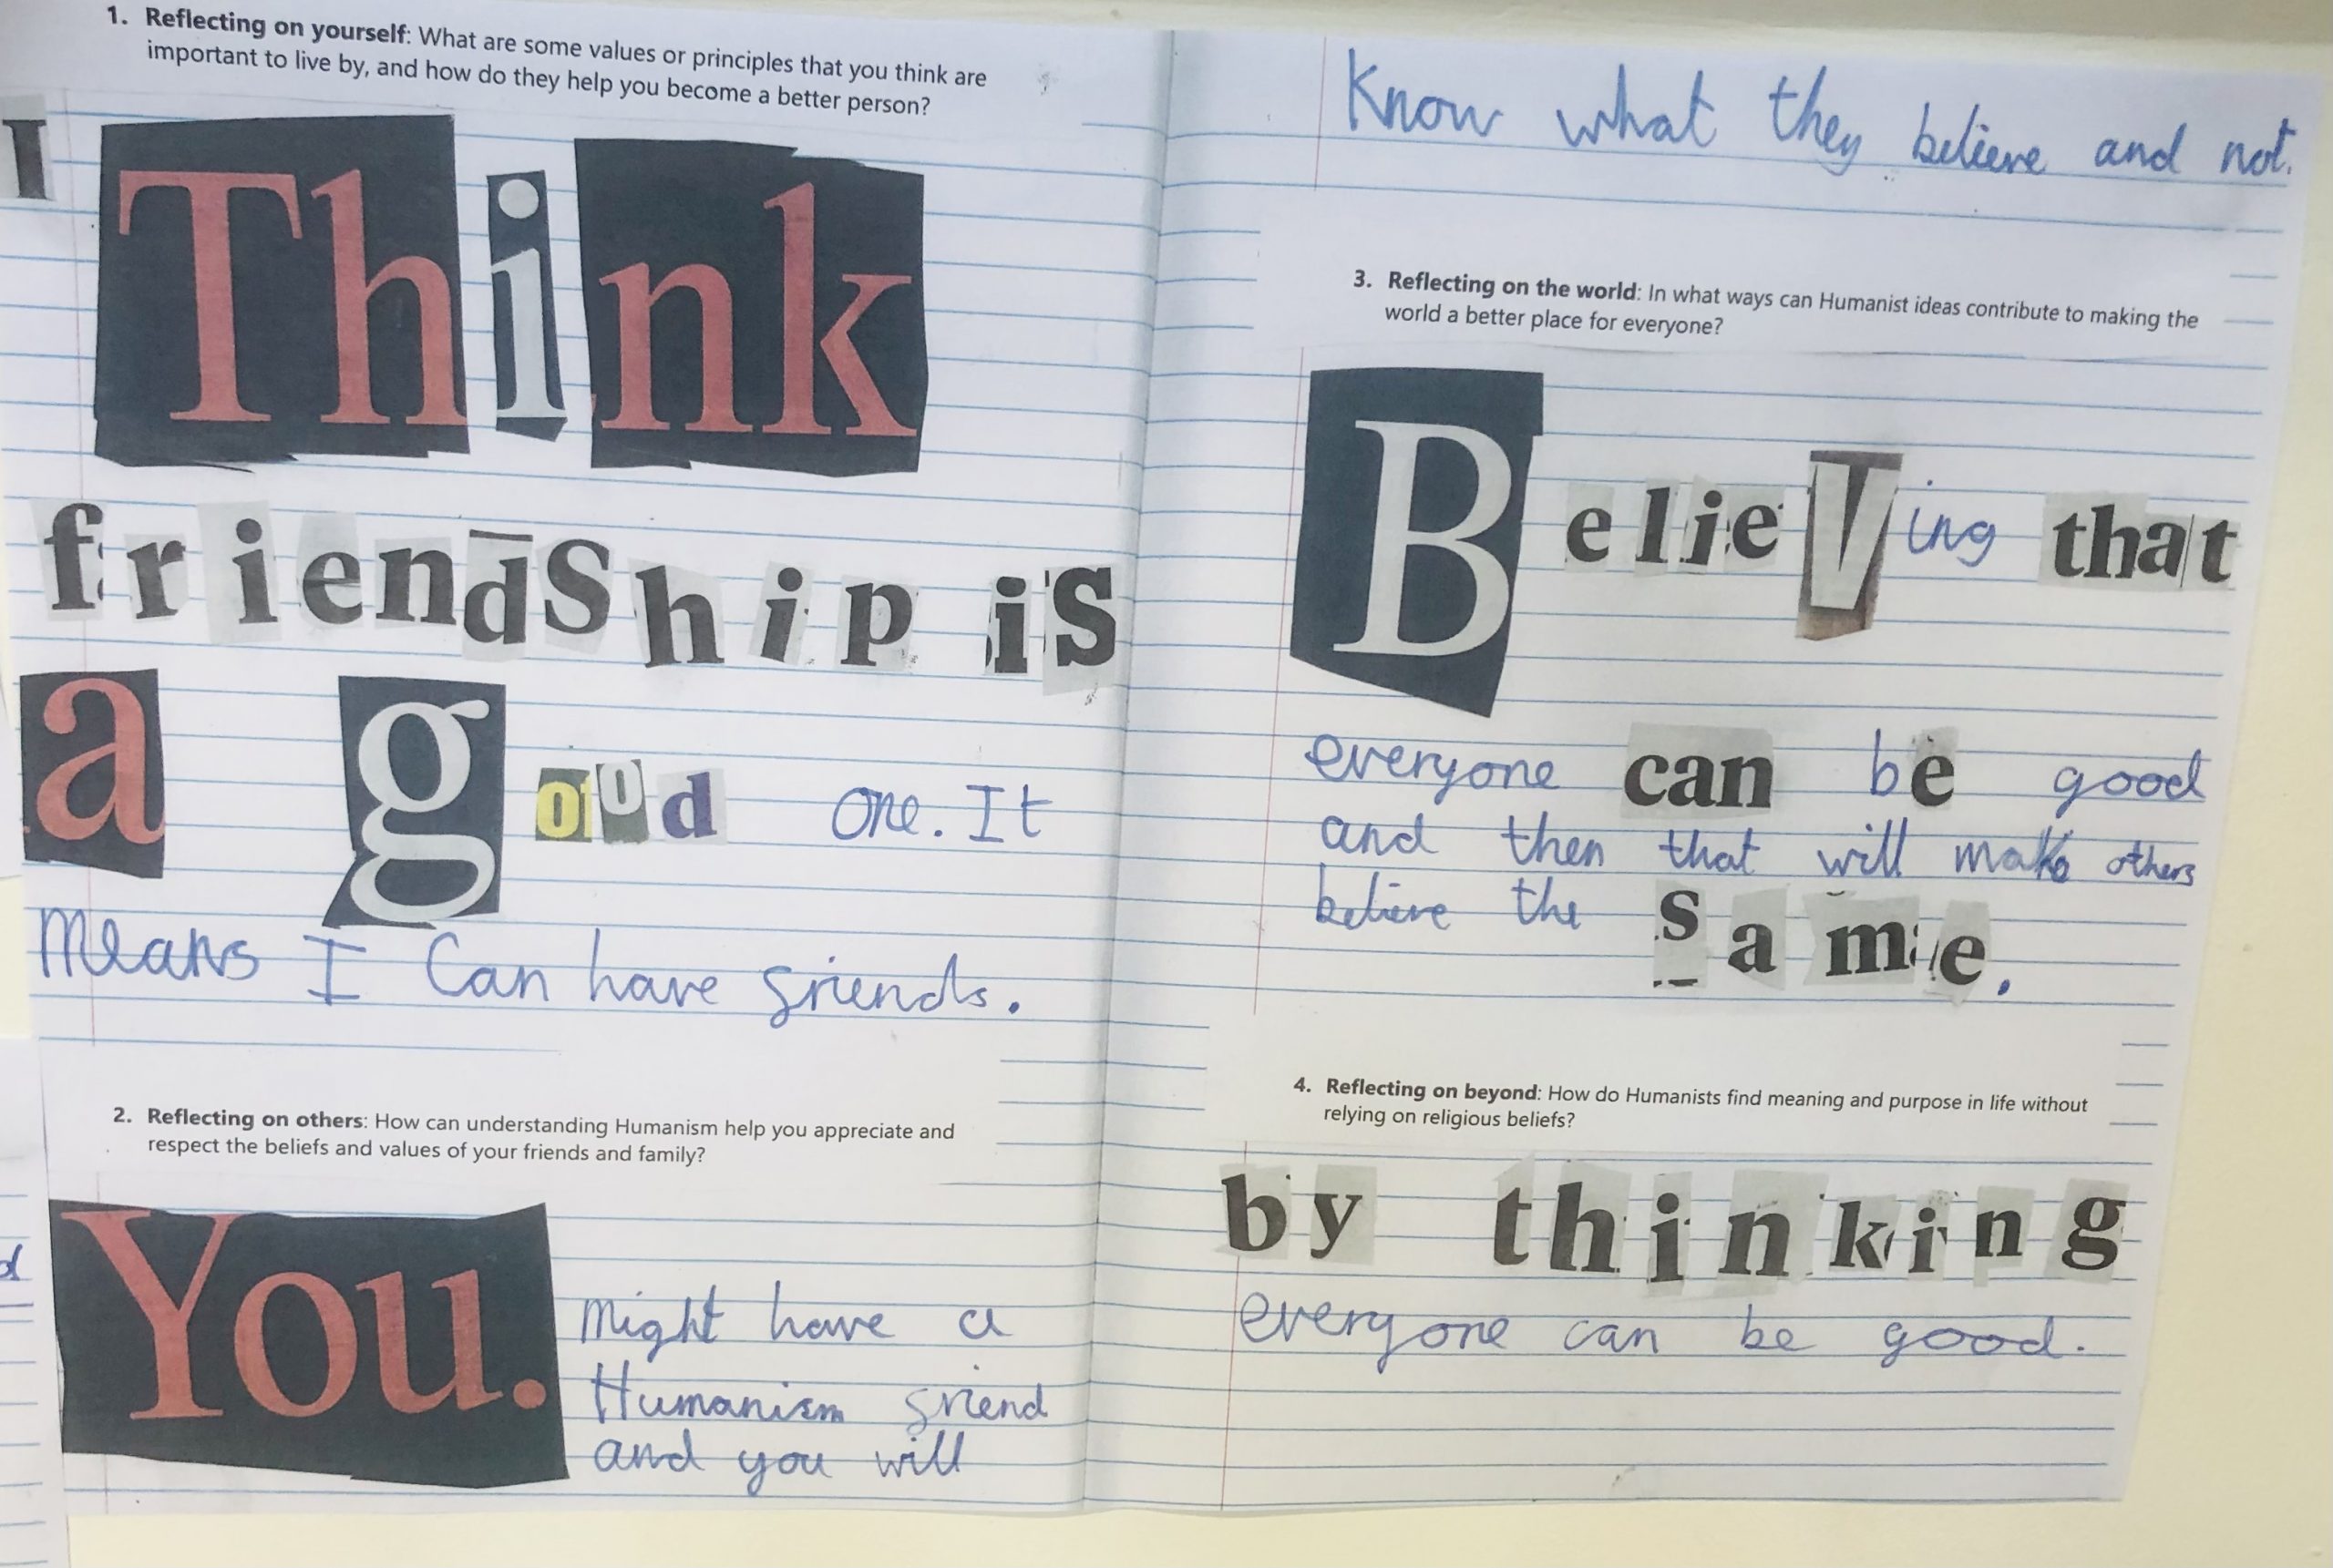 1. Reflecting on yourself: What are some values or principles that you think are
important to live by, and how do they help you become a better person?
I Think
friendShip is
a good one. It
means I Can have friends.
2. Reflecting on others: How can understanding Humanism help you appreciate and
respect the beliefs and values of your friends and family?
You. might have a
Humanism friend
and you will
Know what they believe and not.
3. Reflecting on the world: In what ways can Humanist ideas contribute to making the
world a better place for everyone?
BelieVing that
everyone can be good
and then that will make others
believe the same.
4. Reflecting on beyond: How do Humanists find meaning and purpose in life without
relying on religious beliefs?
by thinking
everyone can be good.